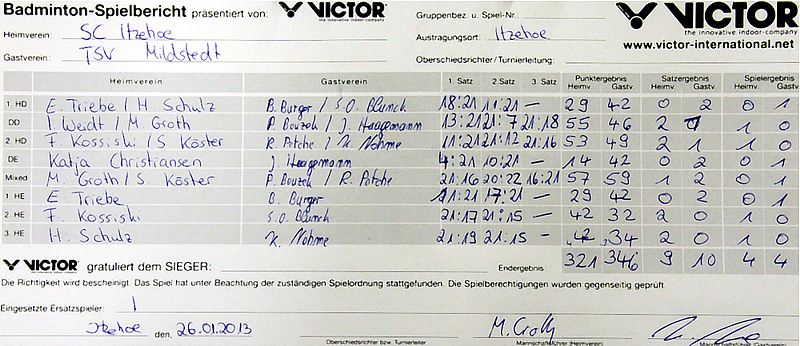 Badminton-Spielbericht präsentiert von: VICTOR the innovative indoor-company Gruppenbez. u. Spiel-Nr. VICTOR the innovative indoor-company
Heimverein: SC Itzehoe Austragungsort: Itzehoe www.victor-international.net
Gastverein: TSV Mildstedt Oberschiedsrichter/Turnierleitung:
Heimverein Gastverein 1. Satz 2.Satz 3. Satz Punktergebn. Heimv. Gastv. Satzergebnis Heimv. Gastv. Spielergebnis Heimv. Gastv.
1. HD E. Triebe / H. Schulz B. Burger / S.O. Blunck 18:21 11:21 – 29 42 0 2 0 1
DD I Weidt / M. Groth P. Bouzek / J. Haagemann 13:21 21:7 21:18 55 46 2 1 1 0
2. HD F. Kossiski / S. Köster R. Petche / K. Nohme 11:21 21:12 21:16 53 49 2 1 1 0
DE Katja Christiansen J. Haagemann 4:21 10:21 – 14 42 0 2 0 1
Mixed M. Groth / S. Köster P. Bouzek / R. Petche 21:16 20:22 16:21 57 59 1 2 0 1
1. HE E Triebe B. Burger 21:21 17:21 – 29 42 0 2 0 1
2. HE F. Kossiski S.O. Blunck 21:17 21:15 – 42 32 2 0 1 0
3. HE H. Schulz K. Nohme 21:19 21:15 – 42 34 2 0 1 0
VICTOR gratuliert dem SIEGER: Endergebnis: 321 346 9 10 4 4
Die Richtigkeit wird bescheinigt. Das Spiel hat unter Beachtung der zuständigen Spielordnung stattgefunden. Die Spielberechtigungen wurden gegenseitig geprüft.
Eingesetzte Ersatzspieler: 1
Itzehoe den, 26.01.2013 M. Groth
Oberschiedsrichter bzw. Turnierleiter Mannschaftsführer (Heimverein) Mannschaftsführer (Gastverein)